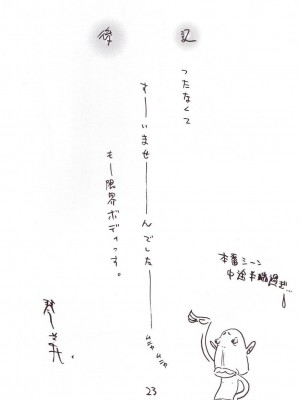 後記
つたなくて
すーいませーーんでしたーーー
もー限界ボディっす。
本番シーン
中途半端過ぎ…!
23